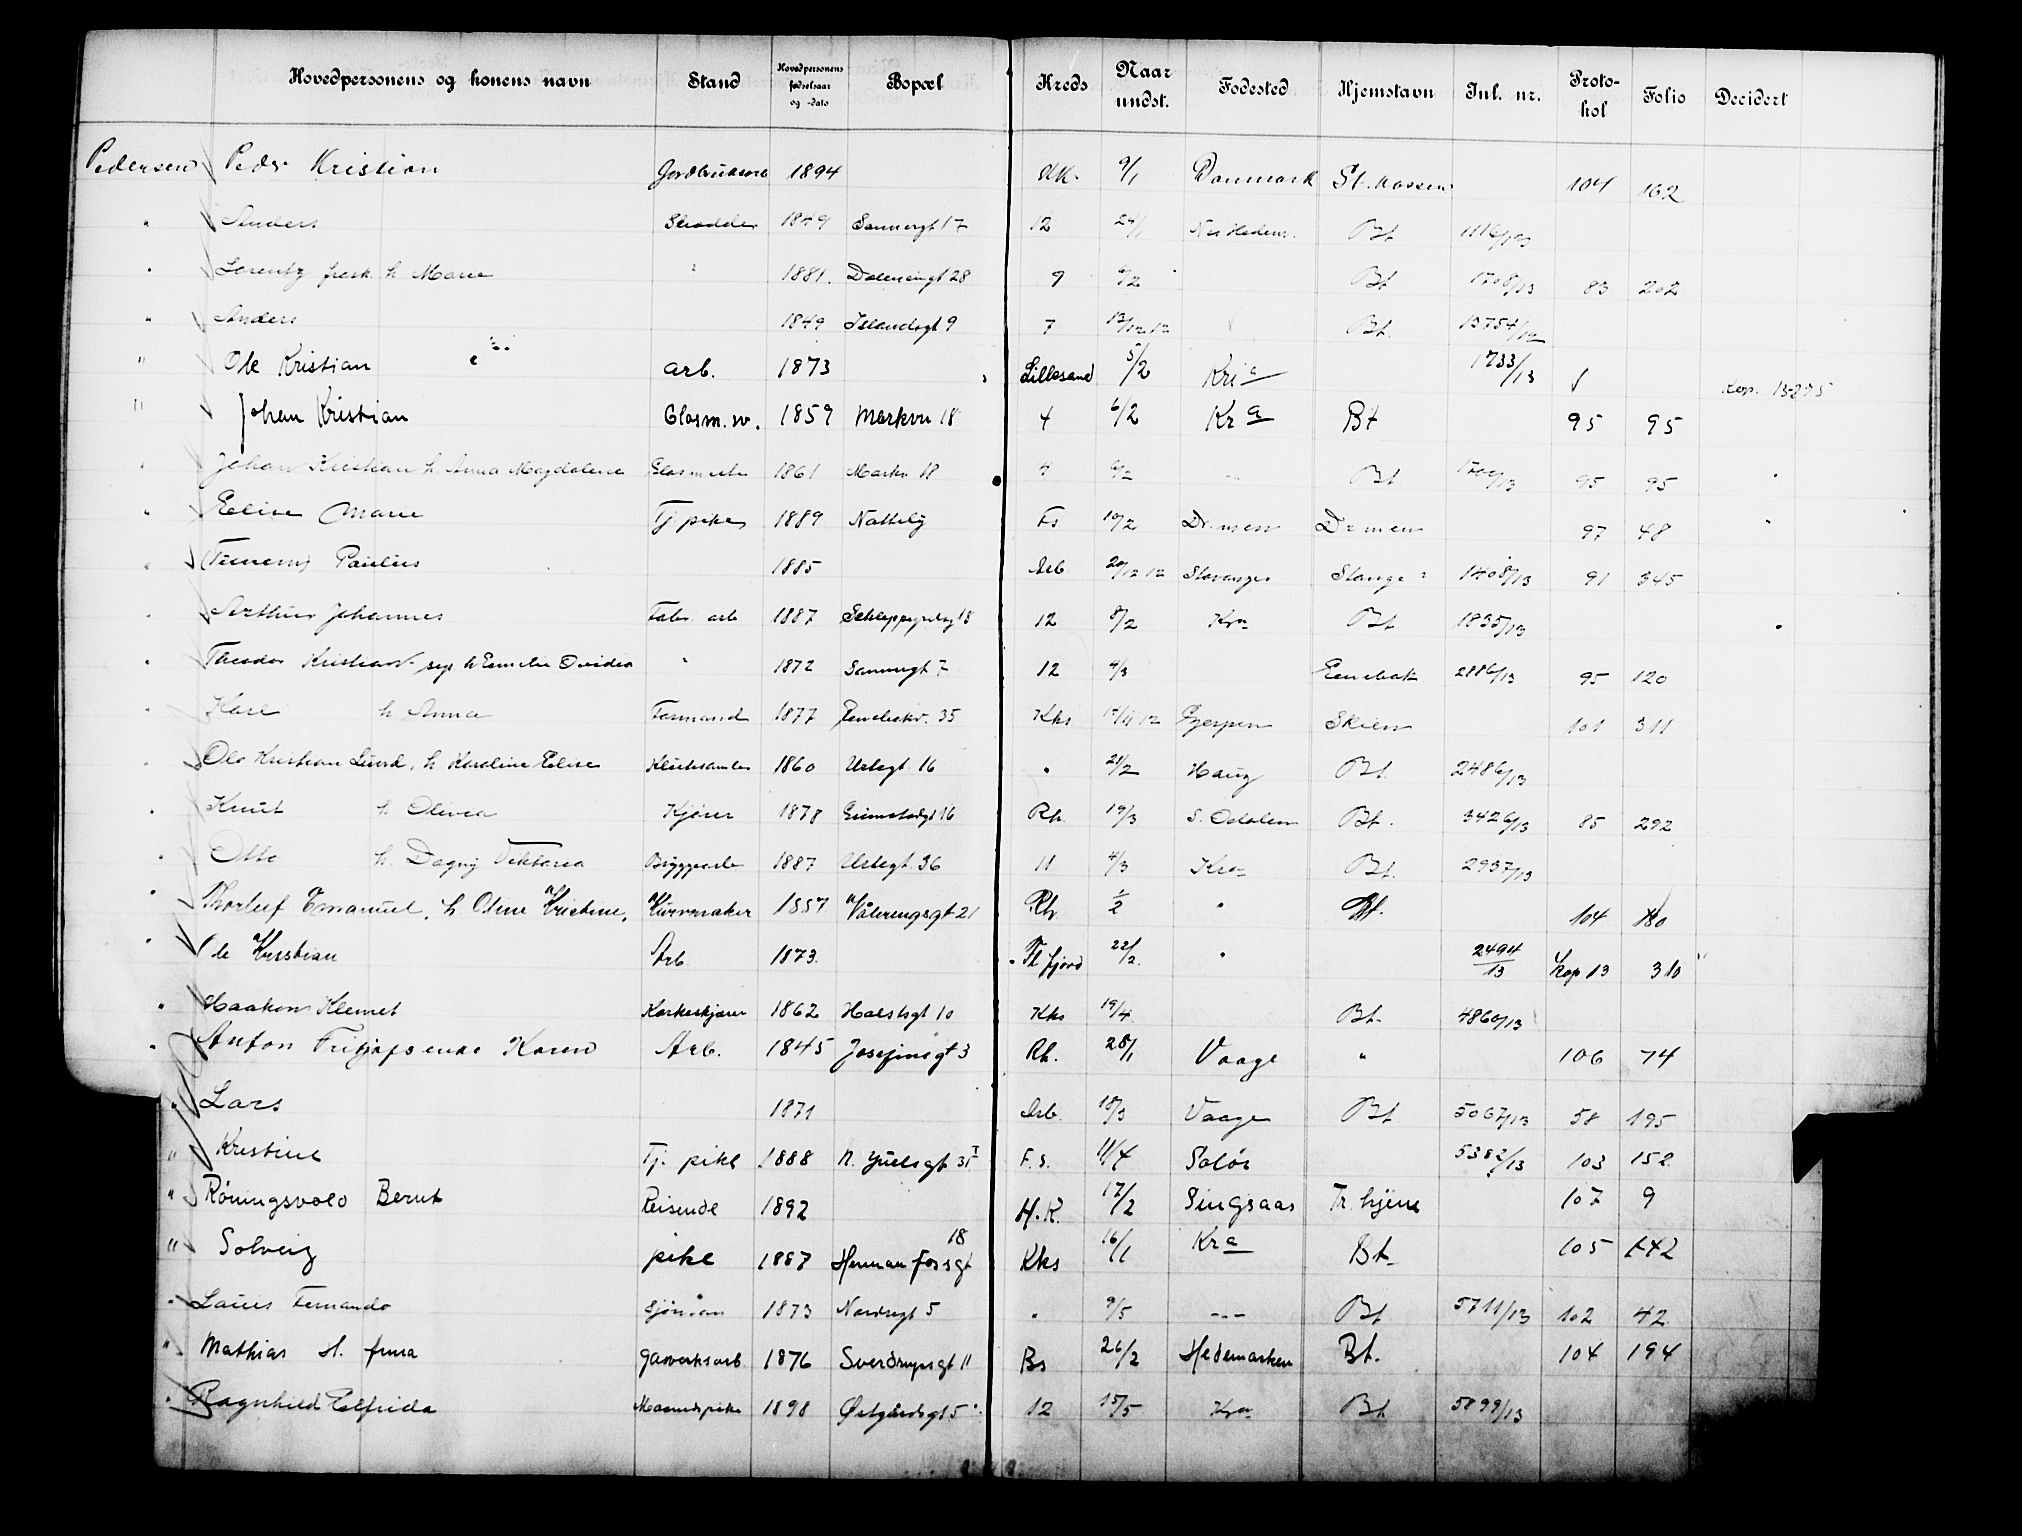 Hovedpersonens og konens navn | Stand | Hovedpersonens fødselsaar og -dato | Bopæl | Kreds | Naar undst. | Fødested | Hjemstavn | Jnl. nr. | Protokol | Folio | Decidert
Pedersen Peder Kristian 1894 9/1 Danmark 104 162
" Anders 1849 Sannergt 17 12 24/1 Bt 1116/13
" Lorentz h Marie " 1881. Dælenengt 28 9 6/2 Bt 1708/13 83 202
" Anders 1849 Islandsgt 9 7 13/12 12 Bt. 13754/12
" Ole Kristian arb. 1873 Lillesand 5/2 Kria 1733/13 Kop. 13-275
" Johan Kristian Glasm.sv. 1859 Markvn 18 4 6/2 Kra Bt 95 95
" Johan Kristian h. Anna Magdalene 1861 Markv 18 4 6/2 Bt 1700/13 95 95
" Elise Marie Tj pike 1889 Fs 10/2 Drmen Drmen 97 48
" (Tunem) Paulius 1885 Arb. 20/12 12 Stavanger Stange ? 1408/13 91 345
" Arthur Johannes Fabr arb 1887 12 8/2 Kra Bt 1835/13
" Theodor Kristian sep h Emilie Ovidia " 1872 Sannergt 7 12 4/3 Enebak 2886/13 95 120
" Karl h. Anna Formand 1877 35 Kks 12 Gjerpen Skien 101 311
" Ole Kristian Lund, h Karoline Elise 1860 Urtegt 16 " 21/2 Haug Bt. 2486/13
" Knut h. Olivia Kjører 1878 Grimstadgt 16 Rh. 19/3 S. Odalen Bt. 3426/13 85 292
" Otto h. Dagny Viktoria Bryggearb 1887 Urtegt. 36 11 4/3 Kra Bt. 2937/13
" Thorleif Emanuel, h Oline Kristine, Kurvmaker 1857 Vålerengsgt 21 Rh 1/2 " Bt. 104 180
" Ole Kristian Arb. 1873. Fl fjord 22/2. " 2494/13 Kop 13 310
" Haakon Klemet 1862 Holstsgt 10 Kks 19/4 Bt. 4860/13
" Anton Fritjofs enke Karen Arb. 1845 Josefinegt 3 Rh. 28/1 Vaage " 106 74
" Lars 1871 Arb. 18/3 Vaage Bt 5067/13 58 195
" Kristine Tj. pike 1888 N. Juelsgt 31 I F.S. 11/4 Solør 5382/13 103 152
" Røningsvold Bernt Reisende 1892 H.K. 17/2 Singsaas Tr. hjem 107 9
" Solveig pike 1887 Herman fossgt 18 Kks 16/1 Kra Bt. 105 142
" Lauis Fernando Sjøman 1873 Nordregt 5 " 9/5 --- Bt 5711/13 102 42
" Mathias H. Anna Gasverksarb 1876 Sverdrupsgt 11 Bs 26/2 Hedemarken Bt. 104 194
" Ragnhild Elfrida 1898 Østgårdsgt 5 12 15/5 Kra Bt 5899/13